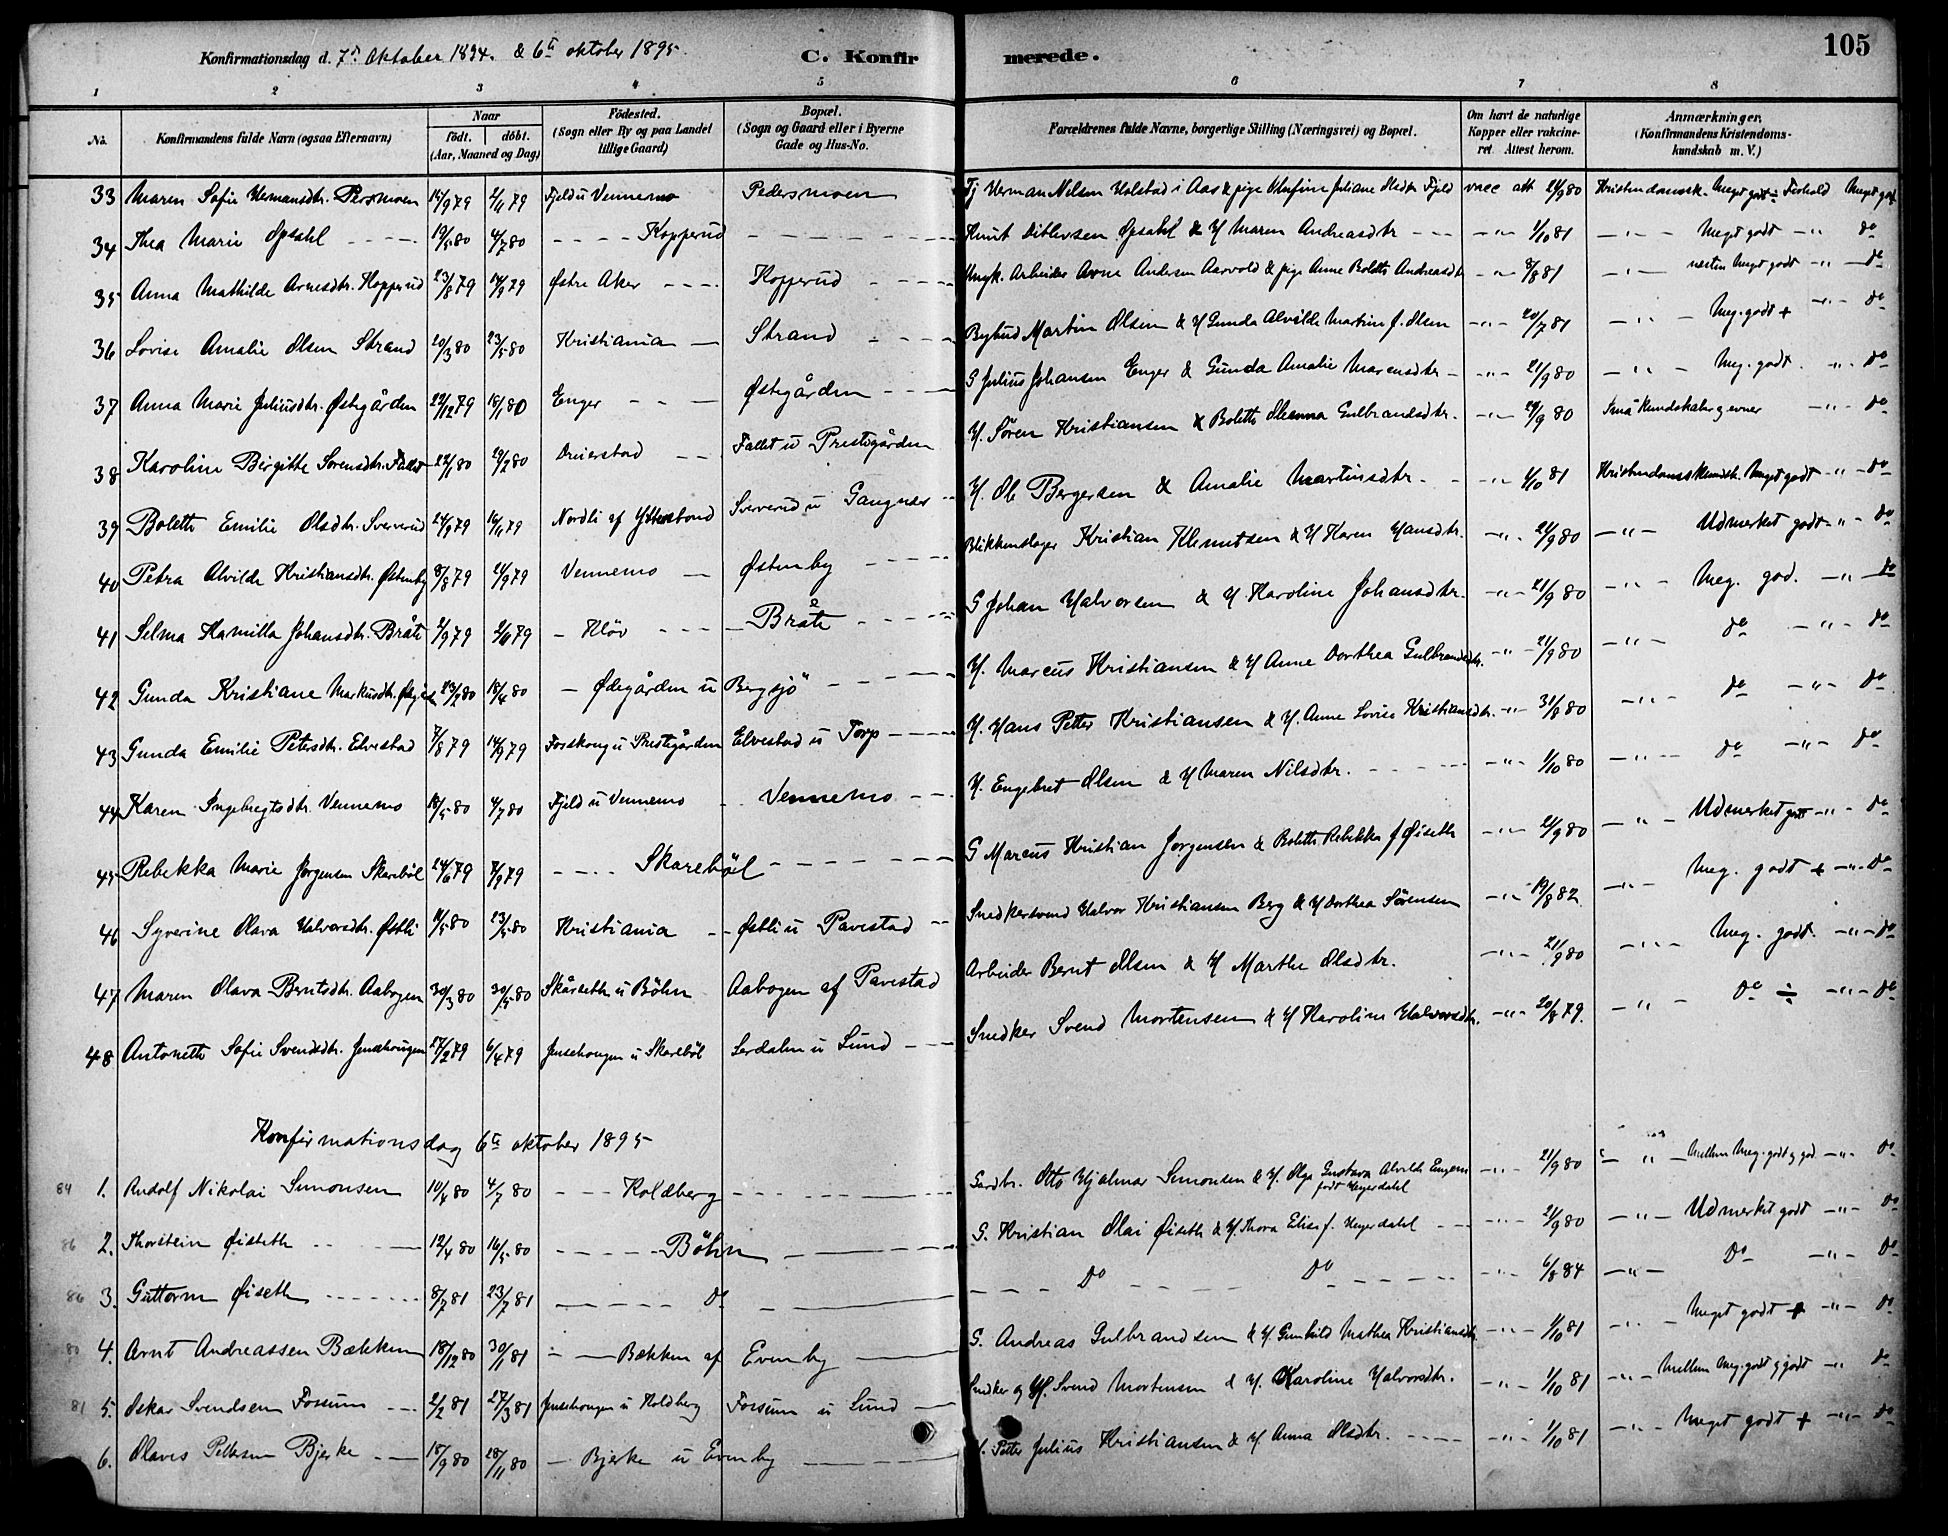 Konfirmationsdag d. 7de Oktober 1894. & 6te oktober 1895
C. Konfirmerede.
105
1 2 3 4 5 6 7 8
No. Konfirmandens fulde Navn (ogsaa Efternavn) Naar födt. döbt. (Aar, Maaned og Dag) Födested. (Sogn eller By og paa Landet tillige Gaard) Bopæl. (Sogn og Gaard eller i Byerne Gade og Hus-No. Forældrenes fulde Navne, borgerlige Stilling (Næringsvei) og Bopæl. Om havt de naturlige Kopper eller vakcineret. Attest herom. Anmærkninger. (Konfirmandens Kristendomskundskab m. V.)
33 Maren Sofie Hermansdtr. Persmoen 14/9 79 2/11 79 Fjeld u Vennemo Pedersmoen Tj Herman Nilsen Holstad i Aas & pige Olufine Juliane Olsdtr Fjeld vacc att 21/9 80 Kristendomssk. Meget godt Forhold Meget godt
34 Thea Marie Opsahl 19/5 80 4/7 80 Kopperud Knut Ditlevsen Opsahl & H Maren Andreasdtr 1/10 81 Meget godt do
35 Anna Mathilde Arnesdtr. Kopperud 23/8 79 14/9 79 Østre Aker Kopperud Ungk. Arbeider Arne Andersen Aarvold & pige Anne Bolette Andreasdtr 3/8 81 næsten Meget godt do
36 Lovise Amalie Olsen Strand 20/3 80 23/5 80 Kristiania Strand Bybud Martin Olsen & H Gunda Alvilde Martine f. Olsen 20/7 81 Meg. godt + do
37 Anna Marie Juliusdtr. Østegården 29/12 79 18/1 80 Enger Østegården G Julius Johansen Enger & Gunda Amalie Marcusdtr 21/9 80 Meg. godt. do
38 Karoline Birgitte Sørensdtr. Fallet 22/1 80 29/2 80 Dreierstad Fallet u Prestegården H. Sören Kristiansen & Bolette Oleanna Gulbrandsdtr. 29/9 80 Små Kundskaber og evner do
39 Bolette Emilie Olsdtr. Sververud 24/9 79 16/11 79 Nordli af Ytterstad Sververud u Gangnæs H. Ole Bergersen & Amalie Martinsdtr. 1/10 81 Kristendomskundsk. Meget godt do
40 Petra Alvilde Kristiansdtr. Østenby 8/8 79 21/9 79 Vennemo Østenby Blikkenslager Kristian Klemetsen & H Karen Hansdtr. 21/9 80 Udmerket godt do
41 Selma Kamilla Johansdtr. Bråte 2/9 79 2/11 79 Klöv Bråte G Johan Halvorsen & H. Karoline Johansdtr. 21/9 80 Meg. god. do
42 Gunda Kristiane Markusdtr. 23/2 80 18/4 80 Ödegården u Bergsjö H. Marcus Kristiansen & H Anne Dorthea Gulbrandsdtr. 21/9 80 do do
43 Gunda Emilie Petersdtr. Elvestad 7/8 79 14/9 79 Forskoug u Prestegården Elvestad u Torp H. Hans Petter Kristiansen & H. Anne Lovise Kristiansdtr. 31/8 80 do do
44 Karen Ingebregtsdtr. Vennemo 18/5 80 4/7 80 Fjeld u Vennemo Vennemo H. Engebret Olsen & H Maren Nilsdtr. 1/10 80 do do
45 Rebekka Marie Jørgensen Skareböl 24/6 79 7/9 79 Skareböl G Marcus Kristian Jørgensen & Bolette Rebekka f Øiseth 21/9 80 Udmerket godt do
46 Syverine Olava Halvorsdtr. Østli 11/5 80 23/5 80 Kristiania Østli u Pavestad Snedkersvend Halvor Kristiansen Berg & H Dorthea Sörensen 19/8 82 Meg. godt + do
47 Maren Olava Berntsdtr. Aabogen 30/3 80 30/5 80 Skårseth u Böhn Aabogen af Pavestad Arbeider Bernt Olsen & H Marthe Olsdtr. 21/9 80 Meg. godt. do
48 Antonette Sofie Svendsdtr. Jensehougen 27/2 79 6/4 79 Jensehougen u Skareböl Serdalen u Lund Snedker Svend Mortensen & H Karoline Halvorsdtr. 20/8 79. do ÷ do
Konfirmationsdag 6te oktober 1895
84 1. Rudolf Nikolai Simonsen 10/4 80 4/7 80 Koldberg Gardbr. Otto Hjalmar Simonsen & H. Olga Gustava Alvilde Eugenie født Heyerdahl 21/9 80 Mellem Meg. godt og god do
86 2. Thorstein Øiseth 12/4 80 16/5 80 Böhn G. Kristian Olai Øiseth & H. Thora Elise f. Heyerdahl 21/9 80 Udmerket godt do
86 3. Guttorm Øiseth 8/7 81 23/7 81 do Do Do 6/8 84 Do do
80 4. Arnt Andreassen Bækken 18/12 80 30/1 81 Bækken af Evenby G. Andreas Gulbrandsen & H. Gunhild Mathea Kristiansdtr 1/10 81 Meget godt + do
81 5. Oskar Svendsen Fossum 2/2 81 27/3 81 Jensehougen u Koldberg Fossum u Lund Snedker og H. Svend Mortensen & H. Karoline Halvorsdtr. 1/10 81 Mellem Meg. godt og godt do
6. Olaves Pettersen Bjerke 18/9 80 28/11 80 Bjerke u Evenby H. Petter Julius Kristiansen & H. Anna Olsdtr. 1/10 81 Meget godt + do